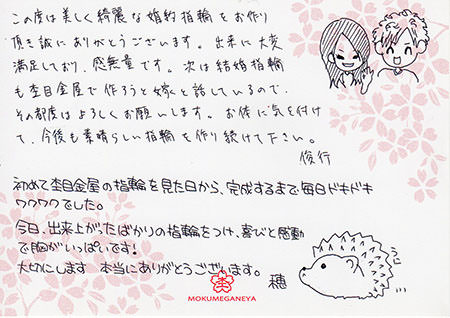 この度は美しく綺麗な婚約指輪をお作り
頂き誠にありがとうございます。出来に大変
満足しており、感無量です。次は結婚指輪
も杢目金屋で作ろうと嫁と話しているので、
その都度はよろしくお願いします。お体に気を付け
て、今後も素晴らしい指輪を作り続けて下さい。
俊行
初めて杢目金屋の指輪を見た日から、完成するまで毎日ドキドキ
ワクワクでした。
今日、出来上がったばかりの指輪をつけ、喜びと感動
で胸がいっぱいです！
大切にします 本当にありがとうございます。 穂
MOKUMEGANEYA